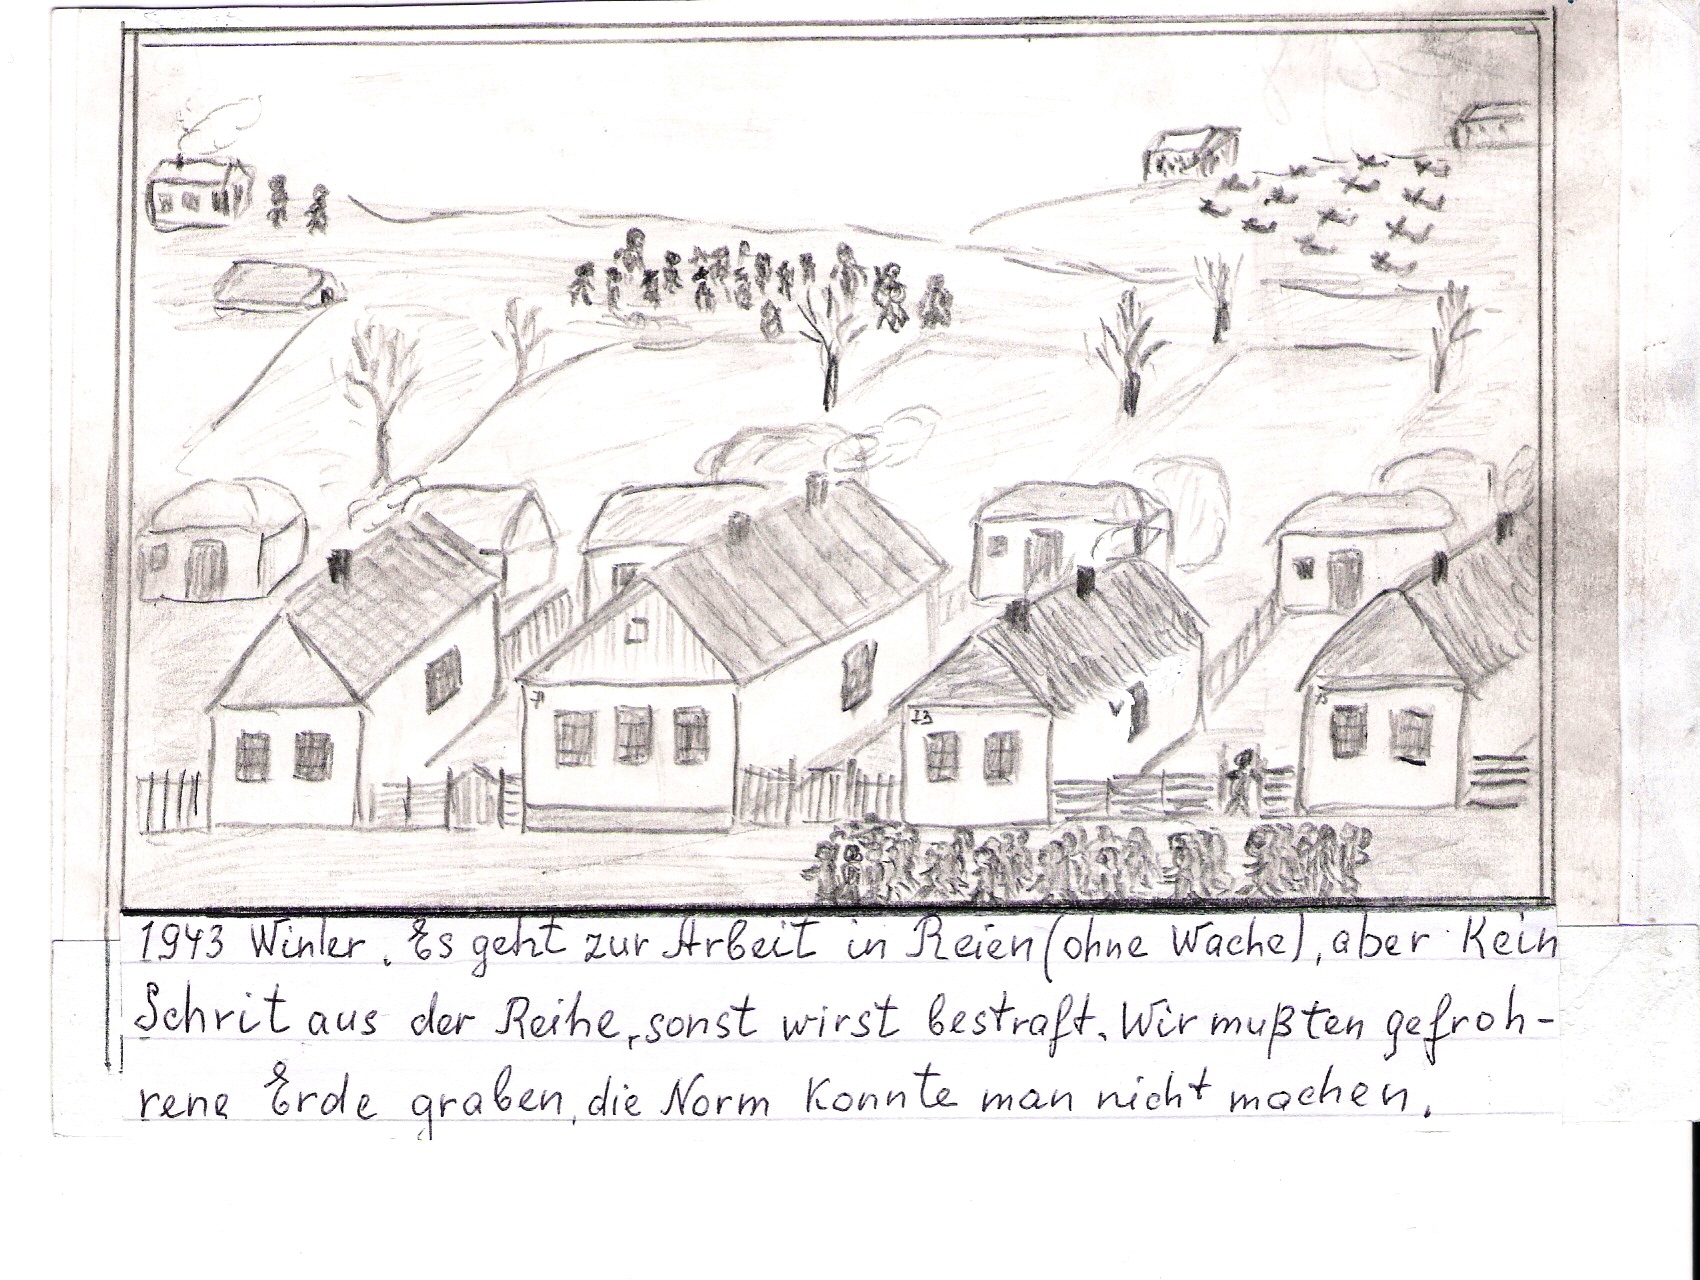 73
1943 Winter. Es geht zur Arbeit in Reien (ohne Wache), aber Kein
Schrit aus der Reihe, sonst wirst bestraft. Wir mußten gefroh-
rene Erde graben, die Norm Konnte man nicht machen.